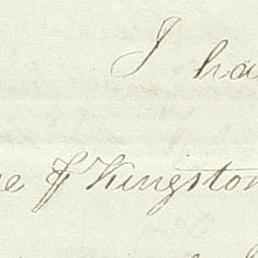 I ha
e of Kingston